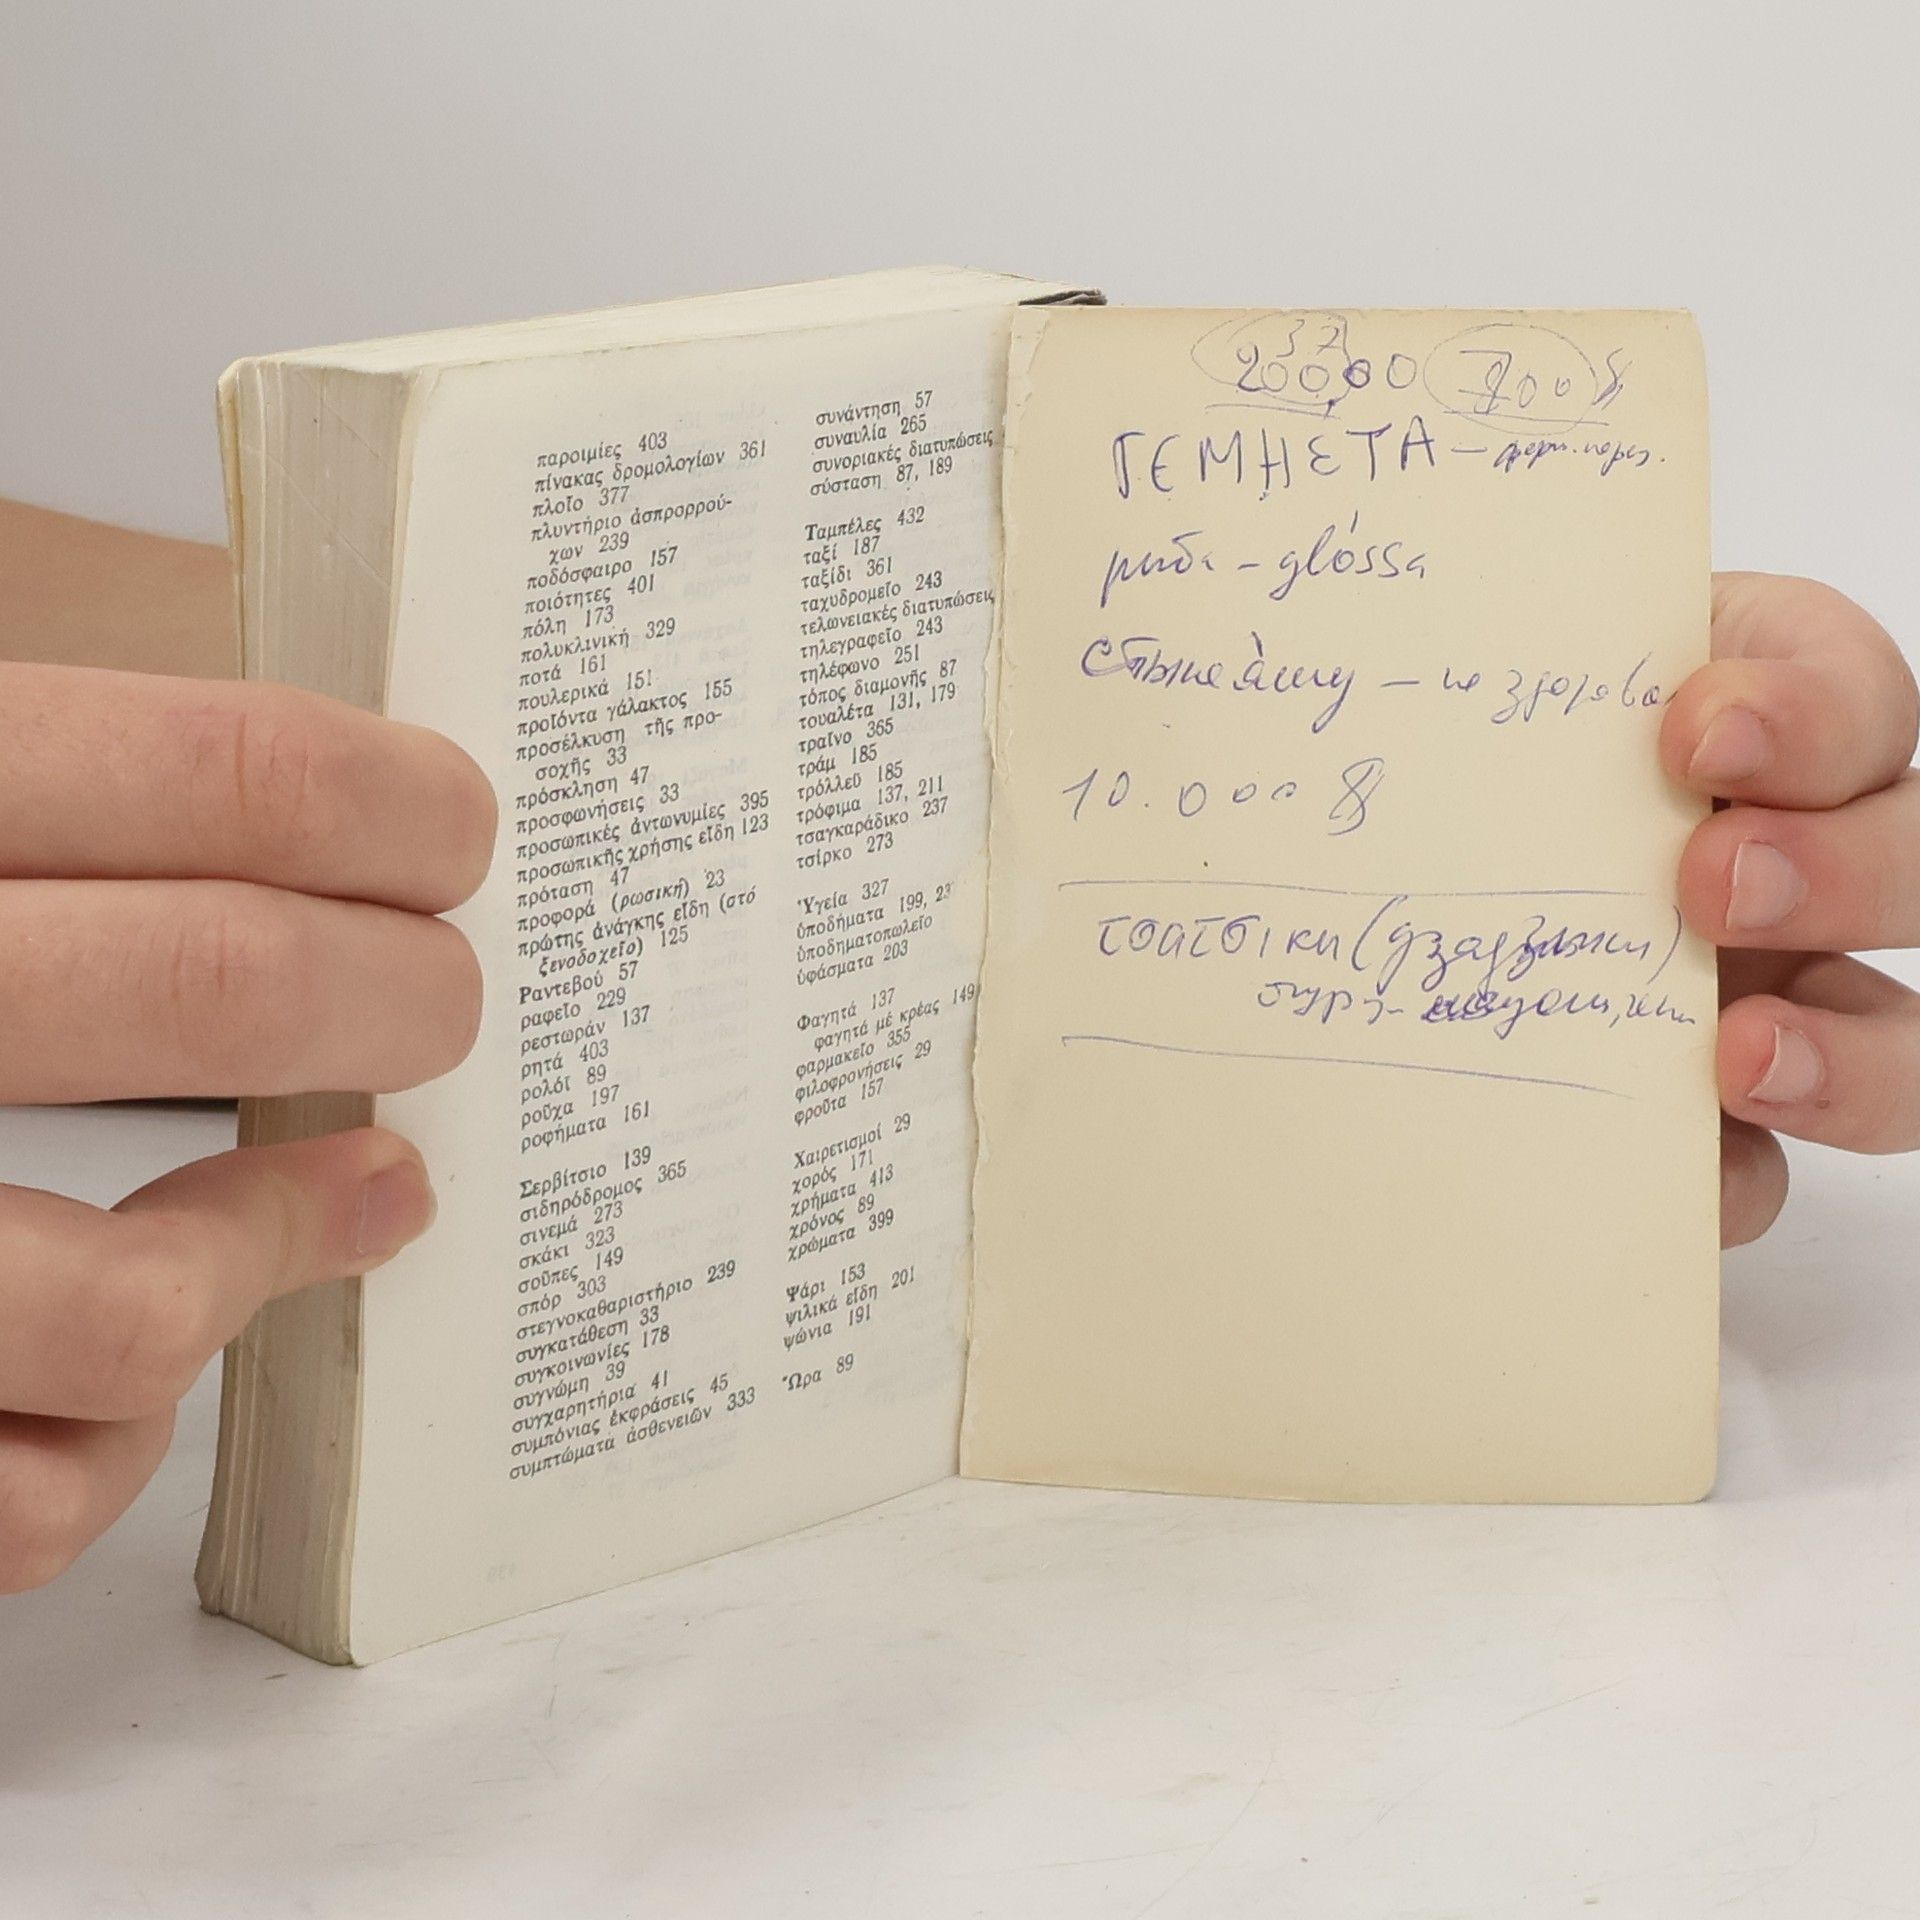 παροιμίες 403
πίνακας δρομολογίων 361
πλοῖο 377
πλυντήριο ἀσπρορρού-
χων 239
ποδόσφαιρο 157
ποιότητες 401
πόλη 173
πολυκλινική 329
ποτά 161
πουλερικά 151
προϊόντα γάλακτος 155
προσέλκυση τῆς προ-
σοχῆς 33
πρόσκληση 47
προσφωνήσεις 33
προσωπικές ἀντωνυμίες 395
προσωπικῆς χρήσης εἴδη 123
πρόταση 47
προφορά (ρωσική) 23
πρώτης ἀνάγκης εἴδη (στό
ξενοδοχεῖο) 125
Ραντεβού 57
ραφεῖο 229
ρεστωράν 137
ρητά 403
ρολόϊ 89
ροῦχα 197
ροφήματα 161
Σερβίτσιο 139
σιδηρόδρομος 365
σινεμά 273
σκάκι 323
σοῦπες 149
σπόρ 303
στεγνοκαθαριστήριο 239
συγκατάθεση 33
συγκοινωνίες 178
συγνώμη 39
συγχαρητήρια 41
συμπόνιας ἐκφράσεις 45
συμπτώματα ἀσθενειῶν 333
συνάντηση 57
συναυλία 265
συνοριακές διατυπώσεις
σύσταση 87, 189
Ταμπέλες 432
ταξί 187
ταξίδι 361
ταχυδρομεῖο 243
τελωνειακές διατυπώσεις
τηλεγραφεῖο 243
τηλέφωνο 251
τόπος διαμονῆς 87
τουαλέτα 131, 179
τραῖνο 365
τράμ 185
τρόλλεϋ 185
τρόφιμα 137, 211
τσαγκαράδικο 237
τσίρκο 273
Ὑγεία 327
ὑποδήματα 199, 23
ὑποδηματοπωλεῖο
ὑφάσματα 203
Φαγητά 137
φαγητά μέ κρέας 149
φαρμακεῖο 355
φιλοφρονήσεις 29
φροῦτα 157
Χαιρετισμοί 29
χορός 171
χρήματα 413
χρόνος 89
χρώματα 399
Ψάρι 153
ψιλικά εἴδη 201
ψώνια 191
Ὥρα 89
ГЕМНЕТА –
– glóssa
10.000
τσατσικи (дзадзыки)